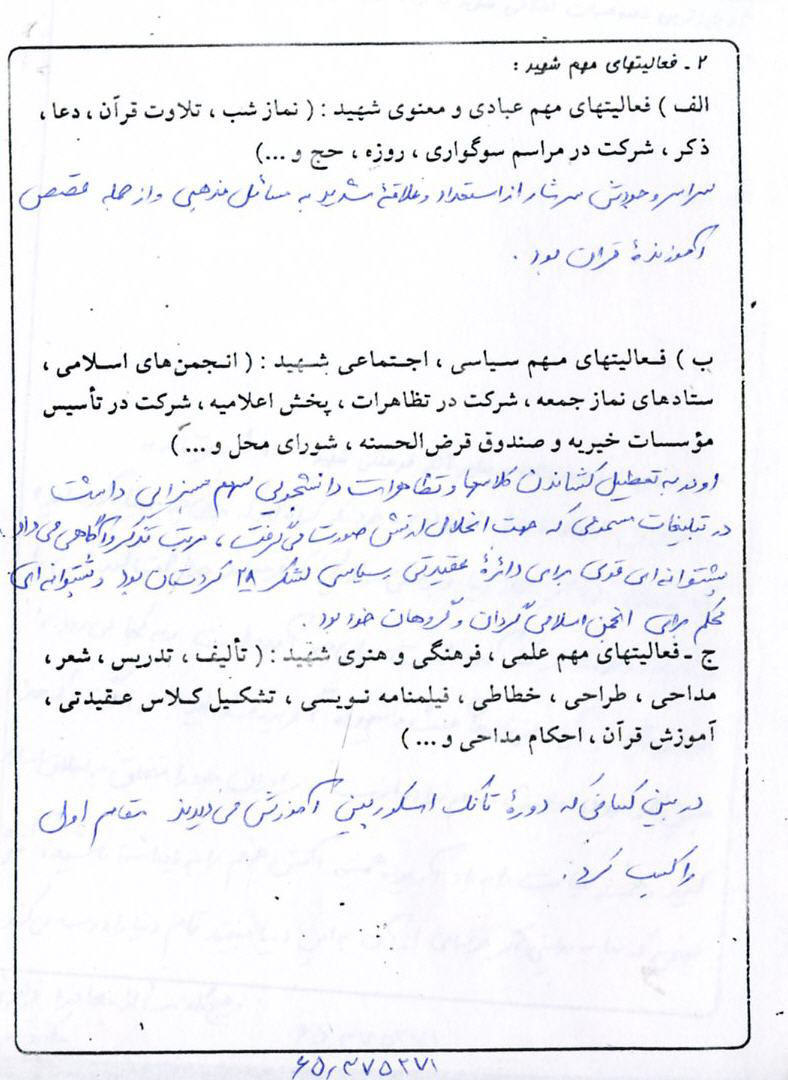 ۲ ـ فعالیتهای مهم شهید :
الف ) فعالیتهای مهم عبادی و معنوی شهید : ( نماز شب ، تلاوت قرآن ، دعا ،
ذکر ، شرکت در مراسم سوگواری ، روزه ، حج و ...)
سراسر وجودش سرشار از استعداد و علاقهٔ شدید به مسائل مذهبی و از جمله قصص
آموزندهٔ قرآن بود .
ب ) فعالیتهای مهم سیاسی ، اجتماعی شهید : ( انجمن‌های اسلامی ،
ستادهای نماز جمعه ، شرکت در تظاهرات ، پخش اعلامیه ، شرکت در تأسیس
مؤسسات خیریه و صندوق قرض‌الحسنه ، شورای محل و ... )
او در به تعطیل کشاندن کلاسها و تظاهرات دانشجویی سهم بسزایی داشت
در تبلیغات مسمومی که جهت انحلال ارتش صورت می‌گرفت ، مرتب تذکر و آگاهی می‌داد .
پشتوانه‌ای قوی برای دائرهٔ عقیدتی سیاسی لشگر ۲۸ کردستان بود و پشتوانه‌ای
محکم برای انجمن اسلامی گردان و گروهان خود بود .
ج ـ فعالیتهای مهم علمی ، فرهنگی و هنری شهید : ( تألیف ، تدریس ، شعر ،
مداحی ، طراحی ، خطاطی ، فیلمنامه نویسی ، تشکیل کلاس عقیدتی ،
آموزش قرآن ، احکام مداحی و ... )
در بین کسانی که دورهٔ تانک اسکورپین آموزش می‌دیدند مقام اول
را کسب کرد .